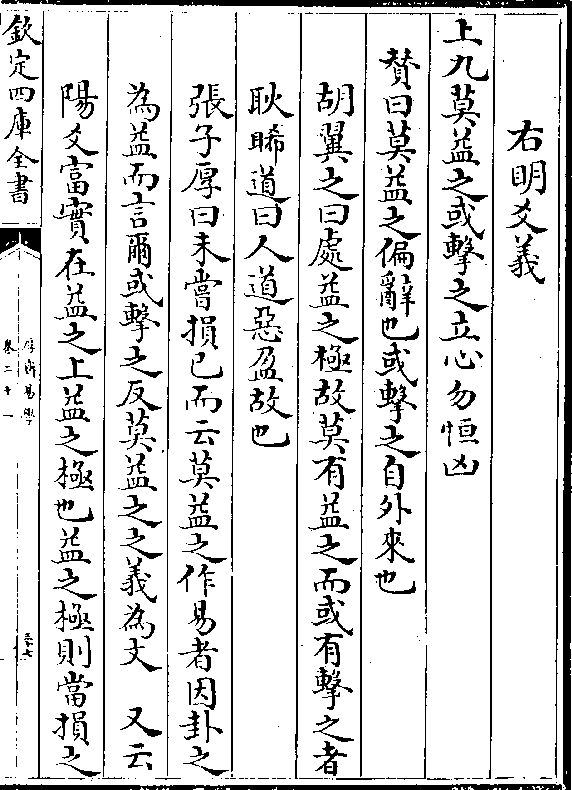 右明爻義
上九莫益之或擊之立心勿恒凶
贊曰莫益之偏辭也或擊之自外來也
胡翼之曰處益之極故莫有益之而或有擊之者
耿晞道曰人道惡盈故也
張子厚曰未嘗損已而云莫益之作易者因卦之
為益而言爾或擊之反莫益之之義為文　又云
陽爻富實在益之上益之極也益之極則當損之
欽定四庫全書
厚齋易學
卷二十一